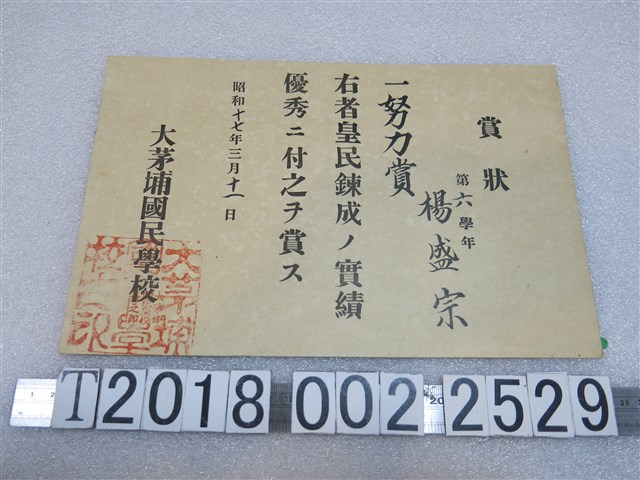 賞狀
第六學年
楊盛宗
一努力賞
右者皇民鍊成ノ實績
優秀ニ付之ヲ賞ス
昭和十七年三月十一日
大茅埔國民學校
T2018 002 2529